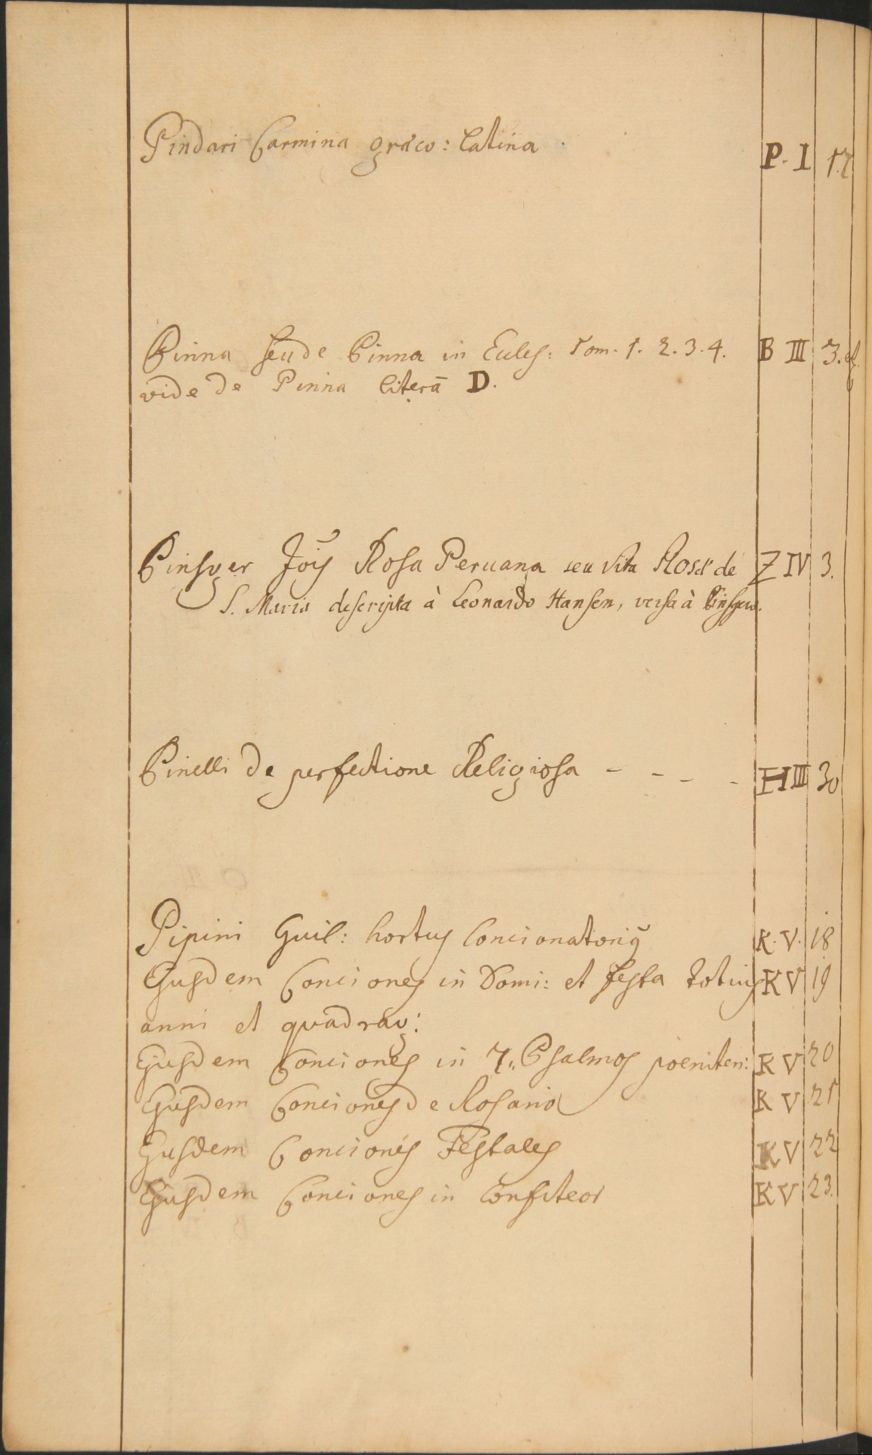 Pindari Carmina græco: latina P. I 17
Pinna seu de Pinna in Eccles: Tom. 1. 2. 3. 4. B III 3. et
vide de Pinna literâ D.
Pinsger Jois Rosa Peruana seu Vita Rosæ de Z IV 3.
S. Maria descripta à Leonardo Hansen, versa à Pinsgero.
Pinelli de perfectione Religiosa - - - - H III 30
Pipini Guil: hortus Concionatorius K. V. 18
Ejusdem Conciones in Domi: et festa totius K V 19
anni et quadrag:
Ejusdem Conciones in 7. Psalmos poeniten: K V 20
Ejusdem Conciones de Rosario K V 21
Ejusdem Conciones Festales K V 22
Ejusdem Conciones in Confiteor K V 23.